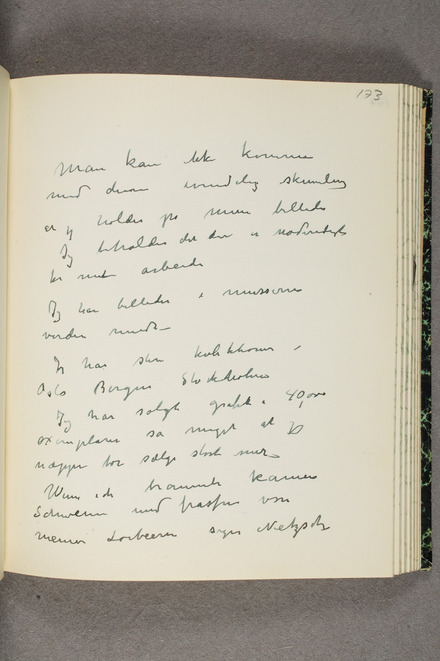 173
Man kan ikke komme
med denne
at jeg holder på mine billeder
Jeg beholder det der er nødvendigt
for mit arbeide
Jeg har billeder i museerne
verden rundt –
Jeg har store kollektioner i
Oslo Bergen Stockholm
Jeg har solgt grafik i 40,000
exemplarer så meget at jeg
næppe bør sælge stort mer
Wenn ich
Schweine und von
meinen Lorbeeren siger Nietzsche